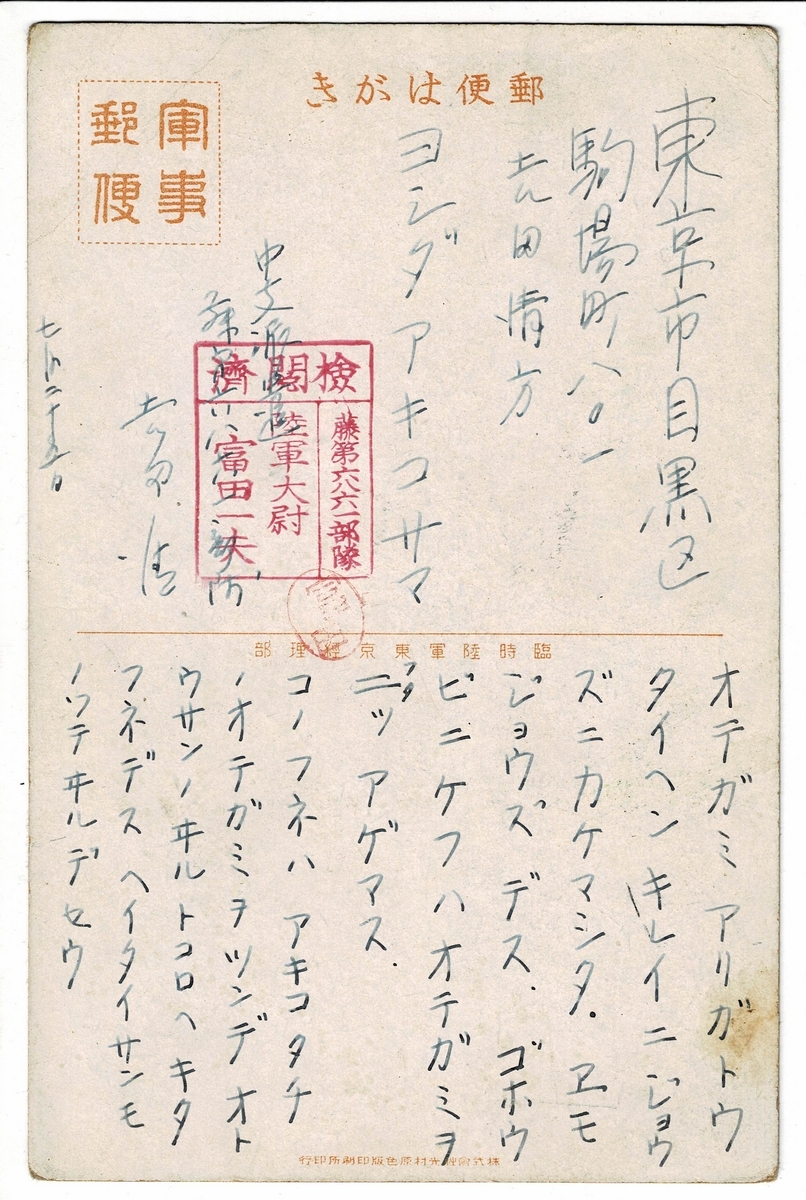 郵便はがき
軍事
郵便
東京市目黒区
駒場町八〇一
吉田清方
ヨシダアキコサマ
中支派遣
吉田清
七月二十五日
検閲済
藤第六八六一部隊
陸軍大尉
富田一夫
臨時陸軍東京経理部
オテガミ アリガトウ
タイヘン キレイニ ジョウ
ズニカケマシタ。ヱモ
ジョウズデス. ゴホウ
ビニケフハオテガミヲ
フタ
ニツ アゲマス.
コノフネハ アキコタチ
ノオテガミヲツンデオト
ウサンノヰルトコロヘキタ
フネデス ヘイタイサンモ
ノツテヰルデセウ